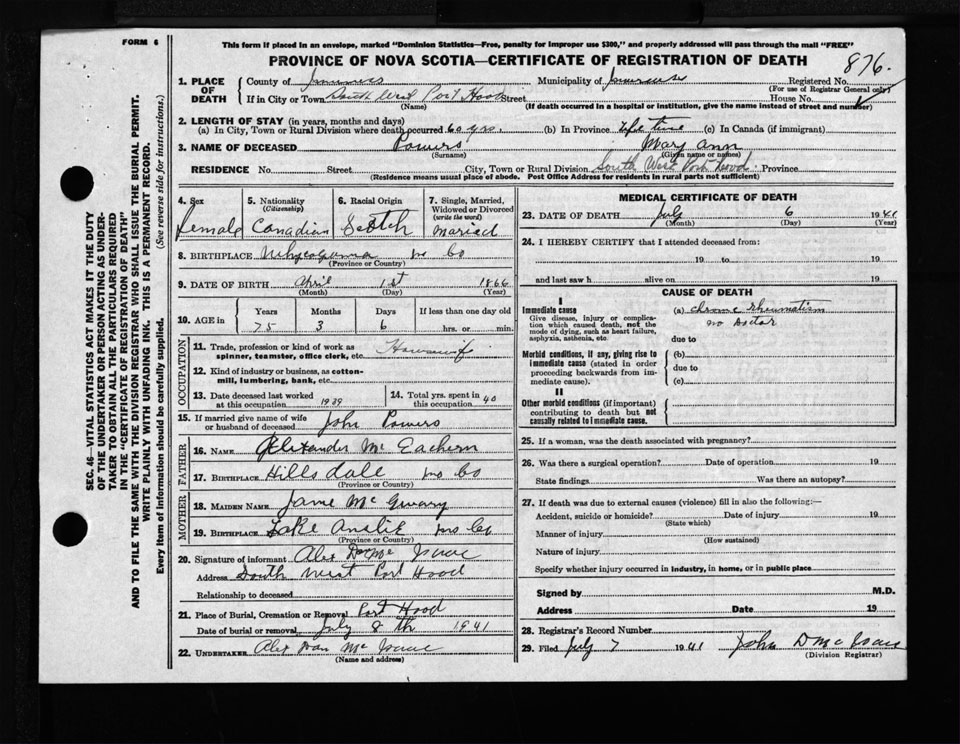 FORM 6
This form if placed in an envelope, marked "Dominion Statistics—Free, penalty for improper use $300," and properly addressed will pass through the mail "FREE"
PROVINCE OF NOVA SCOTIA—CERTIFICATE OF REGISTRATION OF DEATH
876.
SEC. 46—VITAL STATISTICS ACT MAKES IT THE DUTY
OF THE UNDERTAKER OR PERSON ACTING AS UNDER-
TAKER TO OBTAIN ALL THE PARTICULARS REQUIRED
IN THE "CERTIFICATE OF REGISTRATION OF DEATH"
AND TO FILE THE SAME WITH THE DIVISION REGISTRAR WHO SHALL ISSUE THE BURIAL PERMIT.
WRITE PLAINLY WITH UNFADING INK. THIS IS A PERMANENT RECORD.
Every item of information should be carefully supplied. (See reverse side for instructions.)
1. PLACE OF DEATH
County of Municipality of Registered No.
(For use of Registrar General only)
If in City or Town South West Port Hood Street House No.
(Name) (If death occurred in a hospital or institution, give the name instead of street and number)
2. LENGTH OF STAY (in years, months and days)
(a) In City, Town or Rural Division where death occurred 60 yrs. (b) In Province life time (c) In Canada (if immigrant)
3. NAME OF DECEASED Powers Mary Ann
(Surname) (Given name or names)
RESIDENCE No. Street City, Town or Rural Division South West Port Hood Province
(Residence means usual place of abode. Post Office Address for residents in rural parts not sufficient)
4. Sex Female
5. Nationality (Citizenship) Canadian
6. Racial Origin Scotch
7. Single, Married, Widowed or Divorced (write the word) Maried
8. BIRTHPLACE
(Province or Country)
9. DATE OF BIRTH April 1st 1866
(Month) (Day) (Year)
10. AGE in Years Months Days If less than one day old
75 3 6 hrs. or min.
OCCUPATION
11. Trade, profession or kind of work as spinner, teamster, office clerk, etc. Housewife
12. Kind of industry or business, as cotton-mill, lumbering, bank, etc.
13. Date deceased last worked at this occupation 1939
14. Total yrs. spent in this occupation 40
15. If married give name of wife or husband of deceased John Powers
FATHER
16. NAME Alexander Mc Eachern
17. BIRTHPLACE Hillsdale
(Province or Country)
MOTHER
18. MAIDEN NAME Jane
19. BIRTHPLACE Lake Anslie
(Province or Country)
20. Signature of informant Alex Isaac
Address South West Port Hood
Relationship to deceased
21. Place of Burial, Cremation or Removal Port Hood
Date of burial or removal July 8th 1941
22. UNDERTAKER Alex Mc Isaac
(Name and address)
MEDICAL CERTIFICATE OF DEATH
23. DATE OF DEATH July 6 1941
(Month) (Day) (Year)
24. I HEREBY CERTIFY that I attended deceased from:
19 to 19
and last saw h alive on 19
CAUSE OF DEATH
I
Immediate cause
Give disease, injury, or complication which caused death, not the mode of dying, such as heart failure, asphyxia, asthenia, etc
(a) chronic rheumatism
no Doctor
due to
Morbid conditions, if any, giving rise to immediate cause (stated in order proceeding backwards from immediate cause).
(b)
due to
(c)
II
Other morbid conditions (if important) contributing to death but not causally related to immediate cause.
25. If a woman, was the death associated with pregnancy?
26. Was there a surgical operation? Date of operation 19
State findings Was there an autopsy?
27. If death was due to external causes (violence) fill in also the following:—
Accident, suicide or homicide? Date of injury 19
(State which)
Manner of injury
(How sustained)
Nature of injury
Specify whether injury occurred in industry, in home, or in public place
Signed by M.D.
Address Date 19
28. Registrar's Record Number
29. Filed July 7 1941 John D Mc Isaac
(Division Registrar)